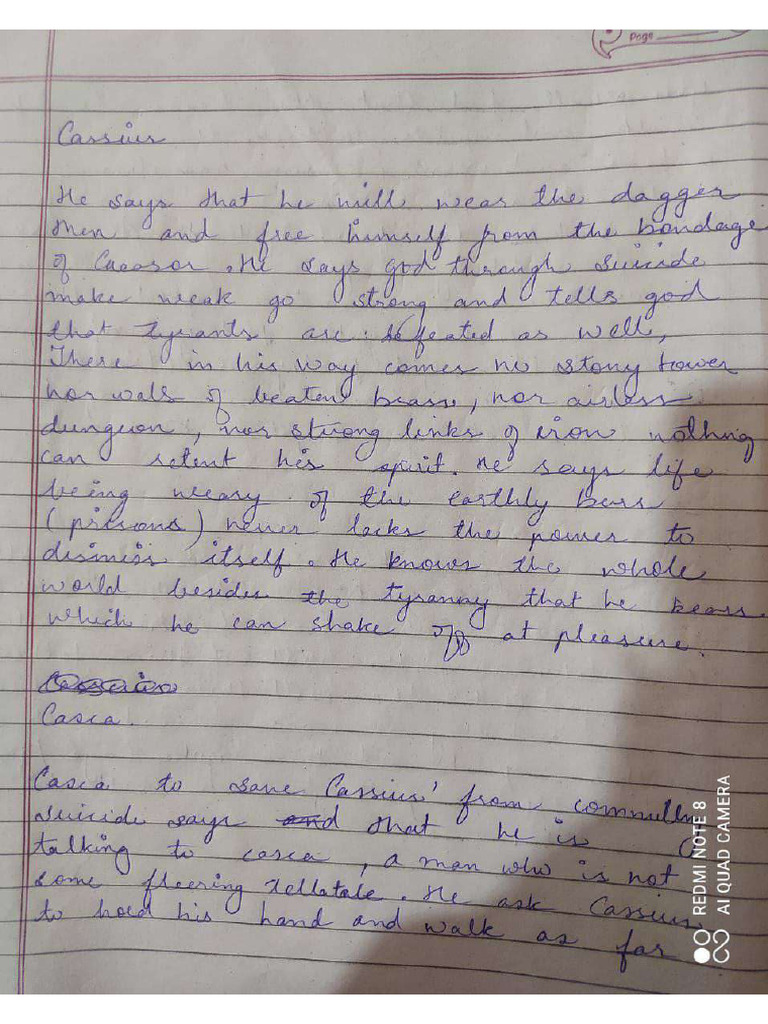 Page
Cassius
He says that he will wear the dagger
then and free himself from the bondage
of Caeasar. He says god through suicide
make weak go strong and tells god
that tyrants are defeated as well,
There in his way comes no stony tower
nor wals of beaten brass, nor airless
dungeon, nor strong links of iron nothing
can retent his spirit. He says life
being weary of the earthly bars
(prisons) never lacks the power to
dismiss itself. He knows the whole
world besides the tyranny that he bears
which he can shake off at pleasure.
Casca.
Casca to save Cassius' from
suicide says and that he is
talking to casca, a man who is not
some fleering telltale. He ask Cassius
to hold his hand and walk as far
REDMI NOTE 8
AI QUAD CAMERA